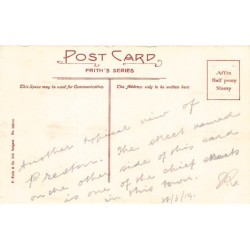 POST CARD
FRITH'S SERIES
Affix
Half penny
Stamp
This Space may be used for Communication.
The Address only to be written here
Another typical view of
Preston. The street named
on the other side of this card
is one of the chief streets
in this town.